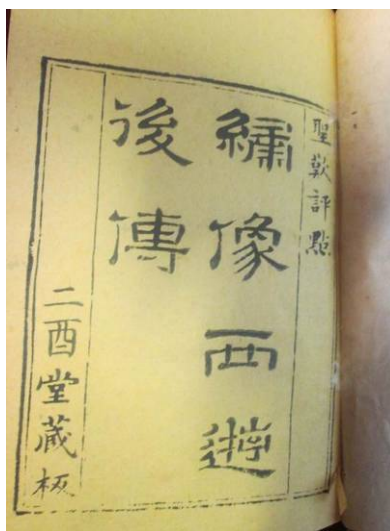 聖歎評點
繡像西遊
後傳
二酉堂藏板